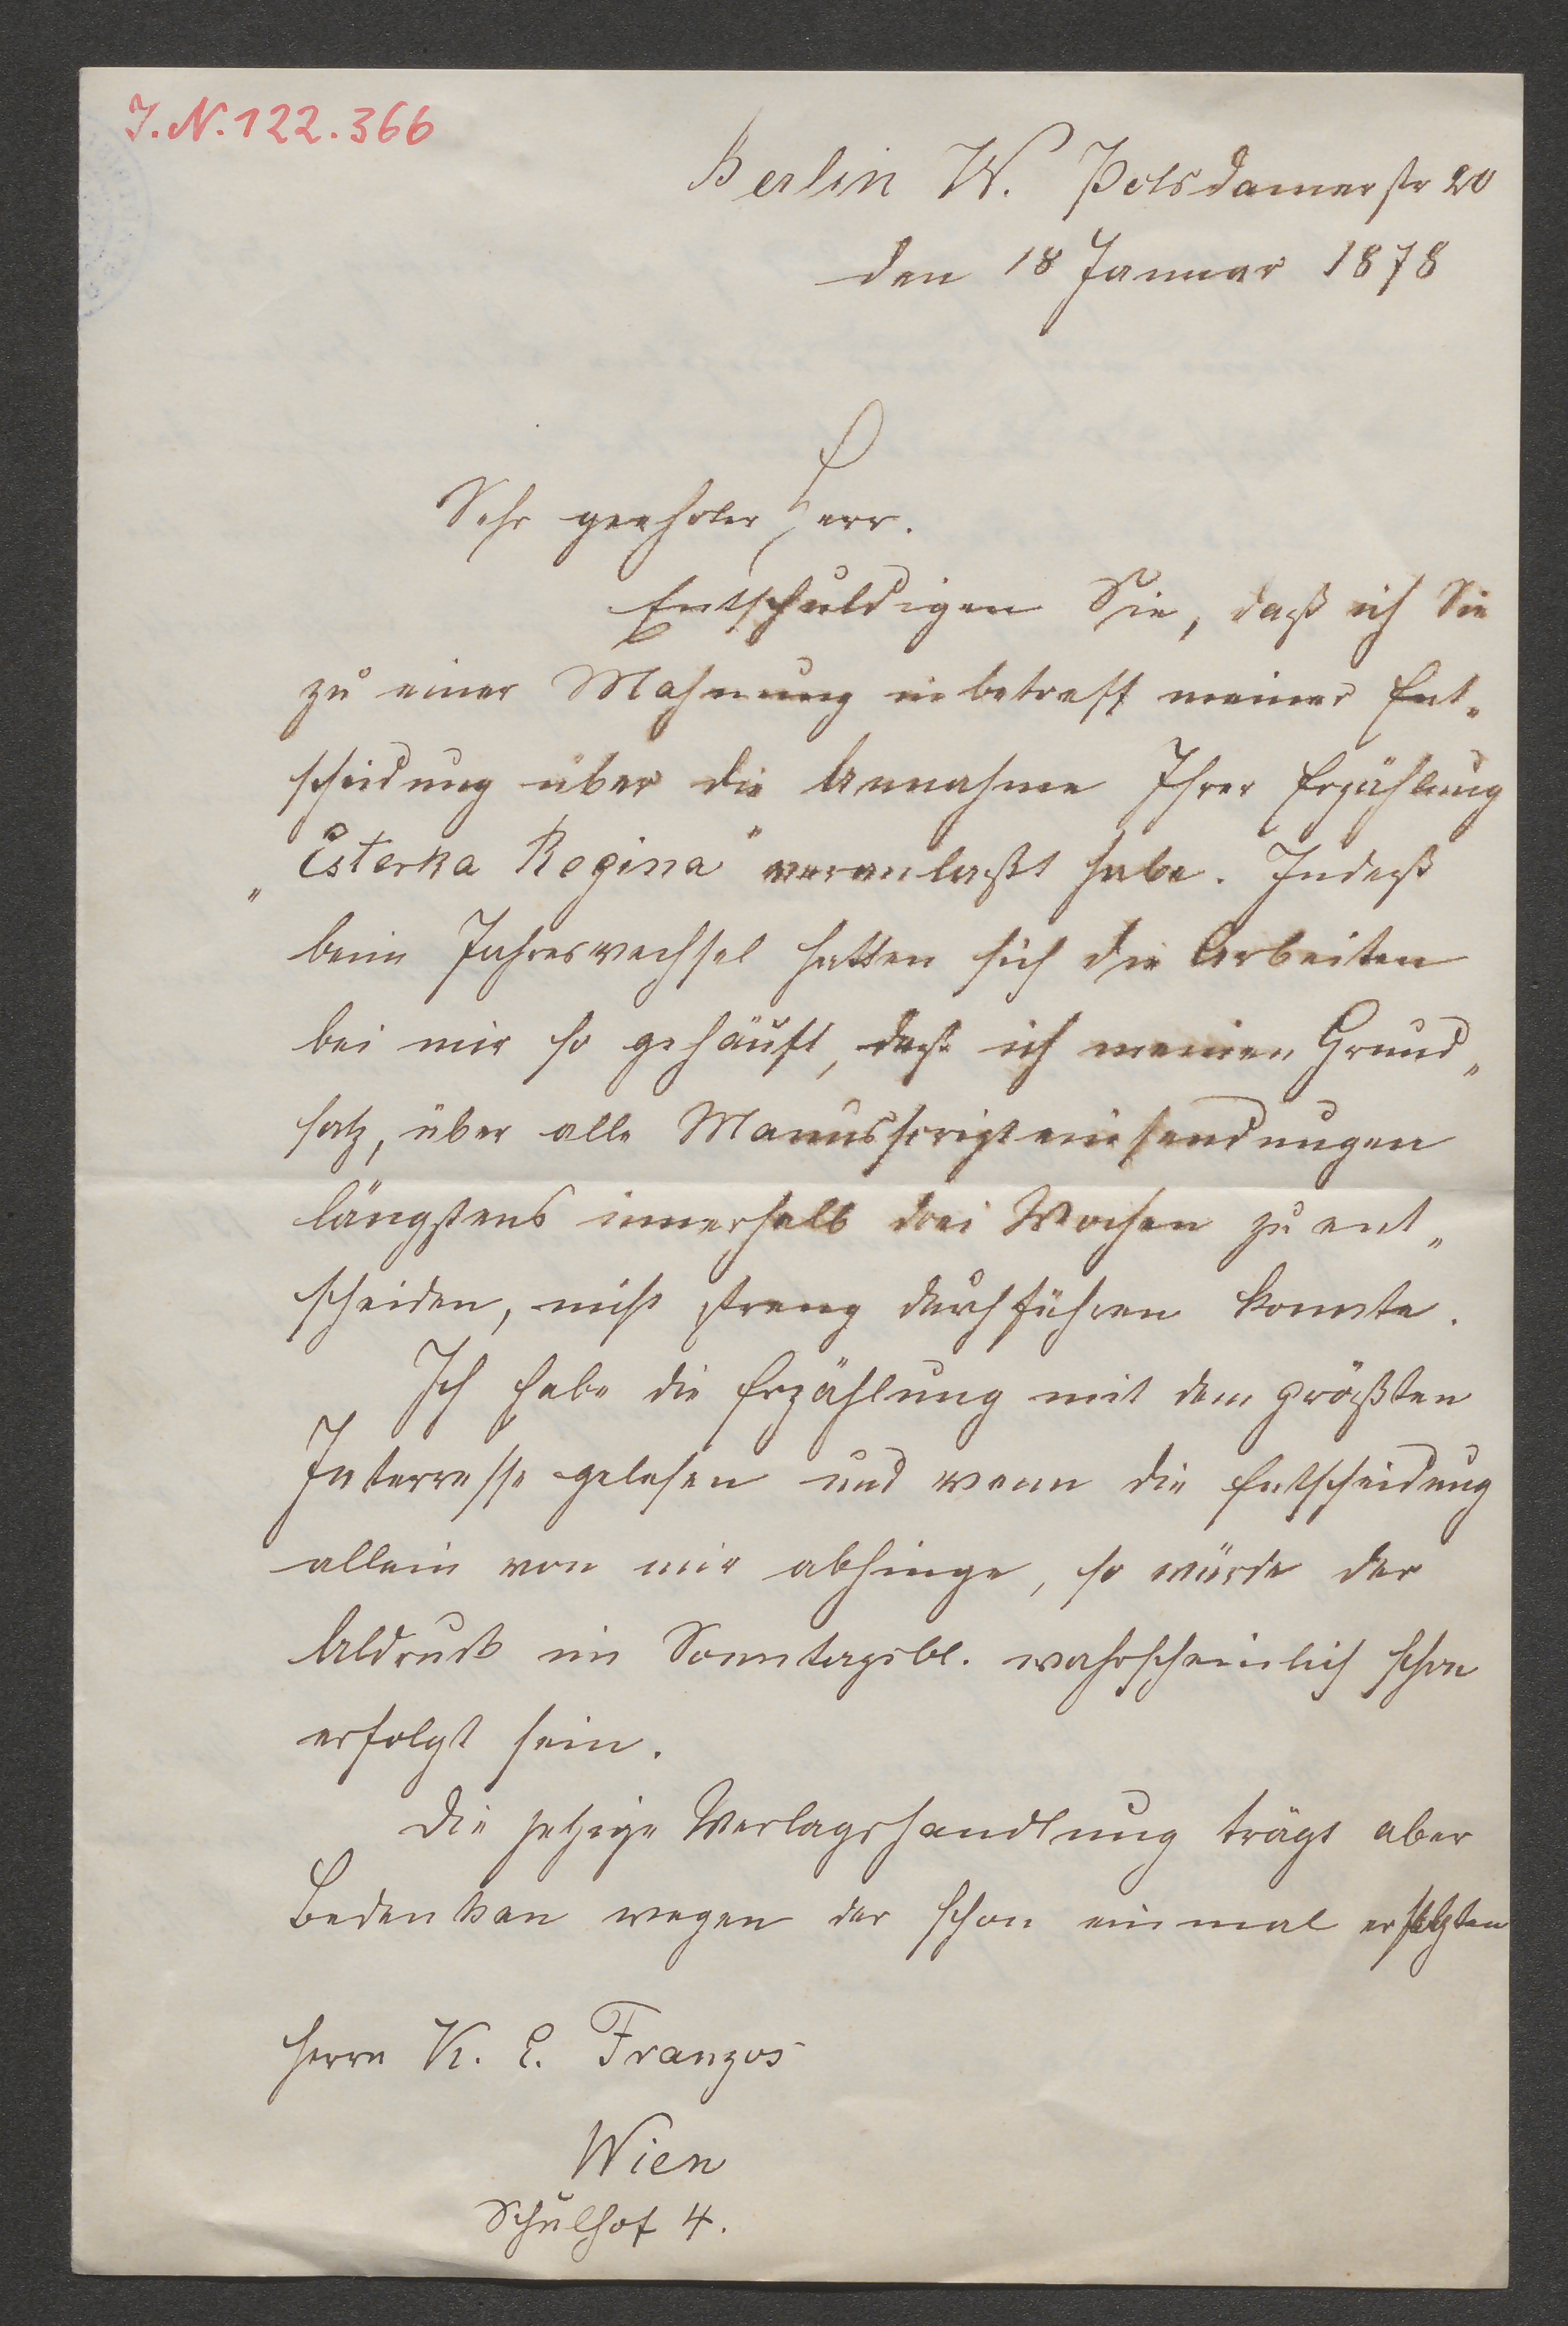 J.N. 122.366
Berlin W. Potsdamerstr 20
den 18 Januar 1878
Sehr geehrter Herr.
Entschuldigen Sie, daß ich Sie
zu einer Mahnung in betreff meiner Ent-
scheidung über die Annahme Ihrer Erzählung
„Esterka Regina" veranlaßt habe. Indeß
beim Jahreswechsel hatten sich die Arbeiten
bei mir so gehäuft, daß ich meinen Grund-
satz, über alle Manuscripteinsendungen
längstens innerhalb drei Wochen zu ent-
scheiden, nicht streng durchführen konnte.
Ich habe die Erzählung mit dem größten
Interresse gelesen und wenn die Entscheidung
allein von mir abhinge, so würde der
Abdruck im Sonntagsbl. wahrscheinlich schon
erfolgt sein.
Die jetzige Verlagshandlung trägt aber
Bedenken wegen der schon einmal erfolgten
Herrn K. E. Franzos
Wien
Schulhof 4.